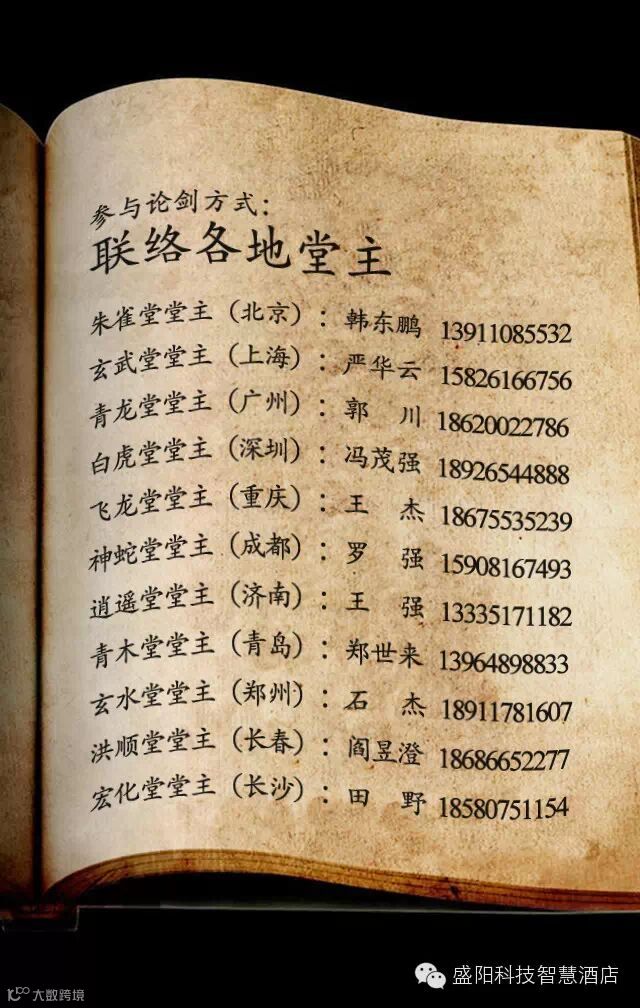 参与论剑方式：
联络各地堂主
朱雀堂堂主（北京）：韩东鹏 13911085532
玄武堂堂主（上海）：严华云 15826166756
青龙堂堂主（广州）：郭 川 18620022786
白虎堂堂主（深圳）：冯茂强 18926544888
飞龙堂堂主（重庆）：王 杰 18675535239
神蛇堂堂主（成都）：罗 强 15908167493
逍遥堂堂主（济南）：王 强 13335171182
青木堂堂主（青岛）：郑世来 13964898833
玄水堂堂主（郑州）：石 杰 18911781607
洪顺堂堂主（长春）：阎昱澄 18686652277
宏化堂堂主（长沙）：田 野 18580751154
盛阳科技智慧酒店
大数跨境